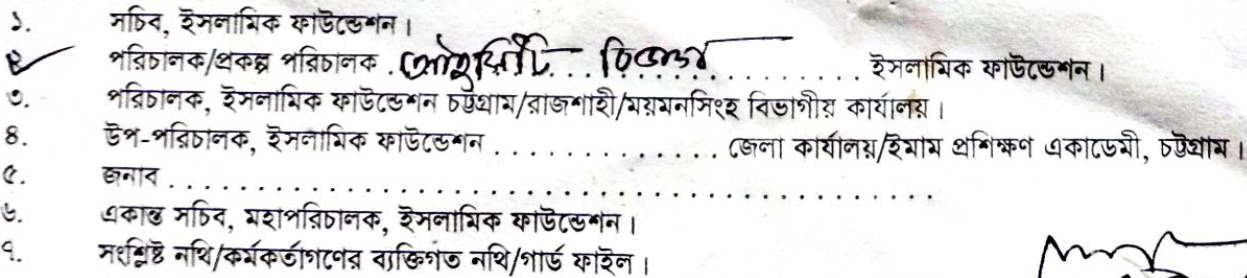 ১. সচিব, ইসলামিক ফাউন্ডেশন।
২. পরিচালক/প্রকল্প পরিচালক . আইসিটি বিভাগ . . . . . . . . . . . . ইসলামিক ফাউন্ডেশন।
৩. পরিচালক, ইসলামিক ফাউন্ডেশন চট্টগ্রাম/রাজশাহী/ময়মনসিংহ বিভাগীয় কার্যালয়।
৪. উপ-পরিচালক, ইসলামিক ফাউন্ডেশন . . . . . . . . . . . . . . জেলা কার্যালয়/ইমাম প্রশিক্ষণ একাডেমী, চট্টগ্রাম।
৫. জনাব . . . . . . . . . . . . . . . . . . . . . . . . . . . . . . . . . . . . . . . . . . . .
৬. একান্ত সচিব, মহাপরিচালক, ইসলামিক ফাউন্ডেশন।
৭. সংশ্লিষ্ট নথি/কর্মকর্তাগণের ব্যক্তিগত নথি/গার্ড ফাইল।